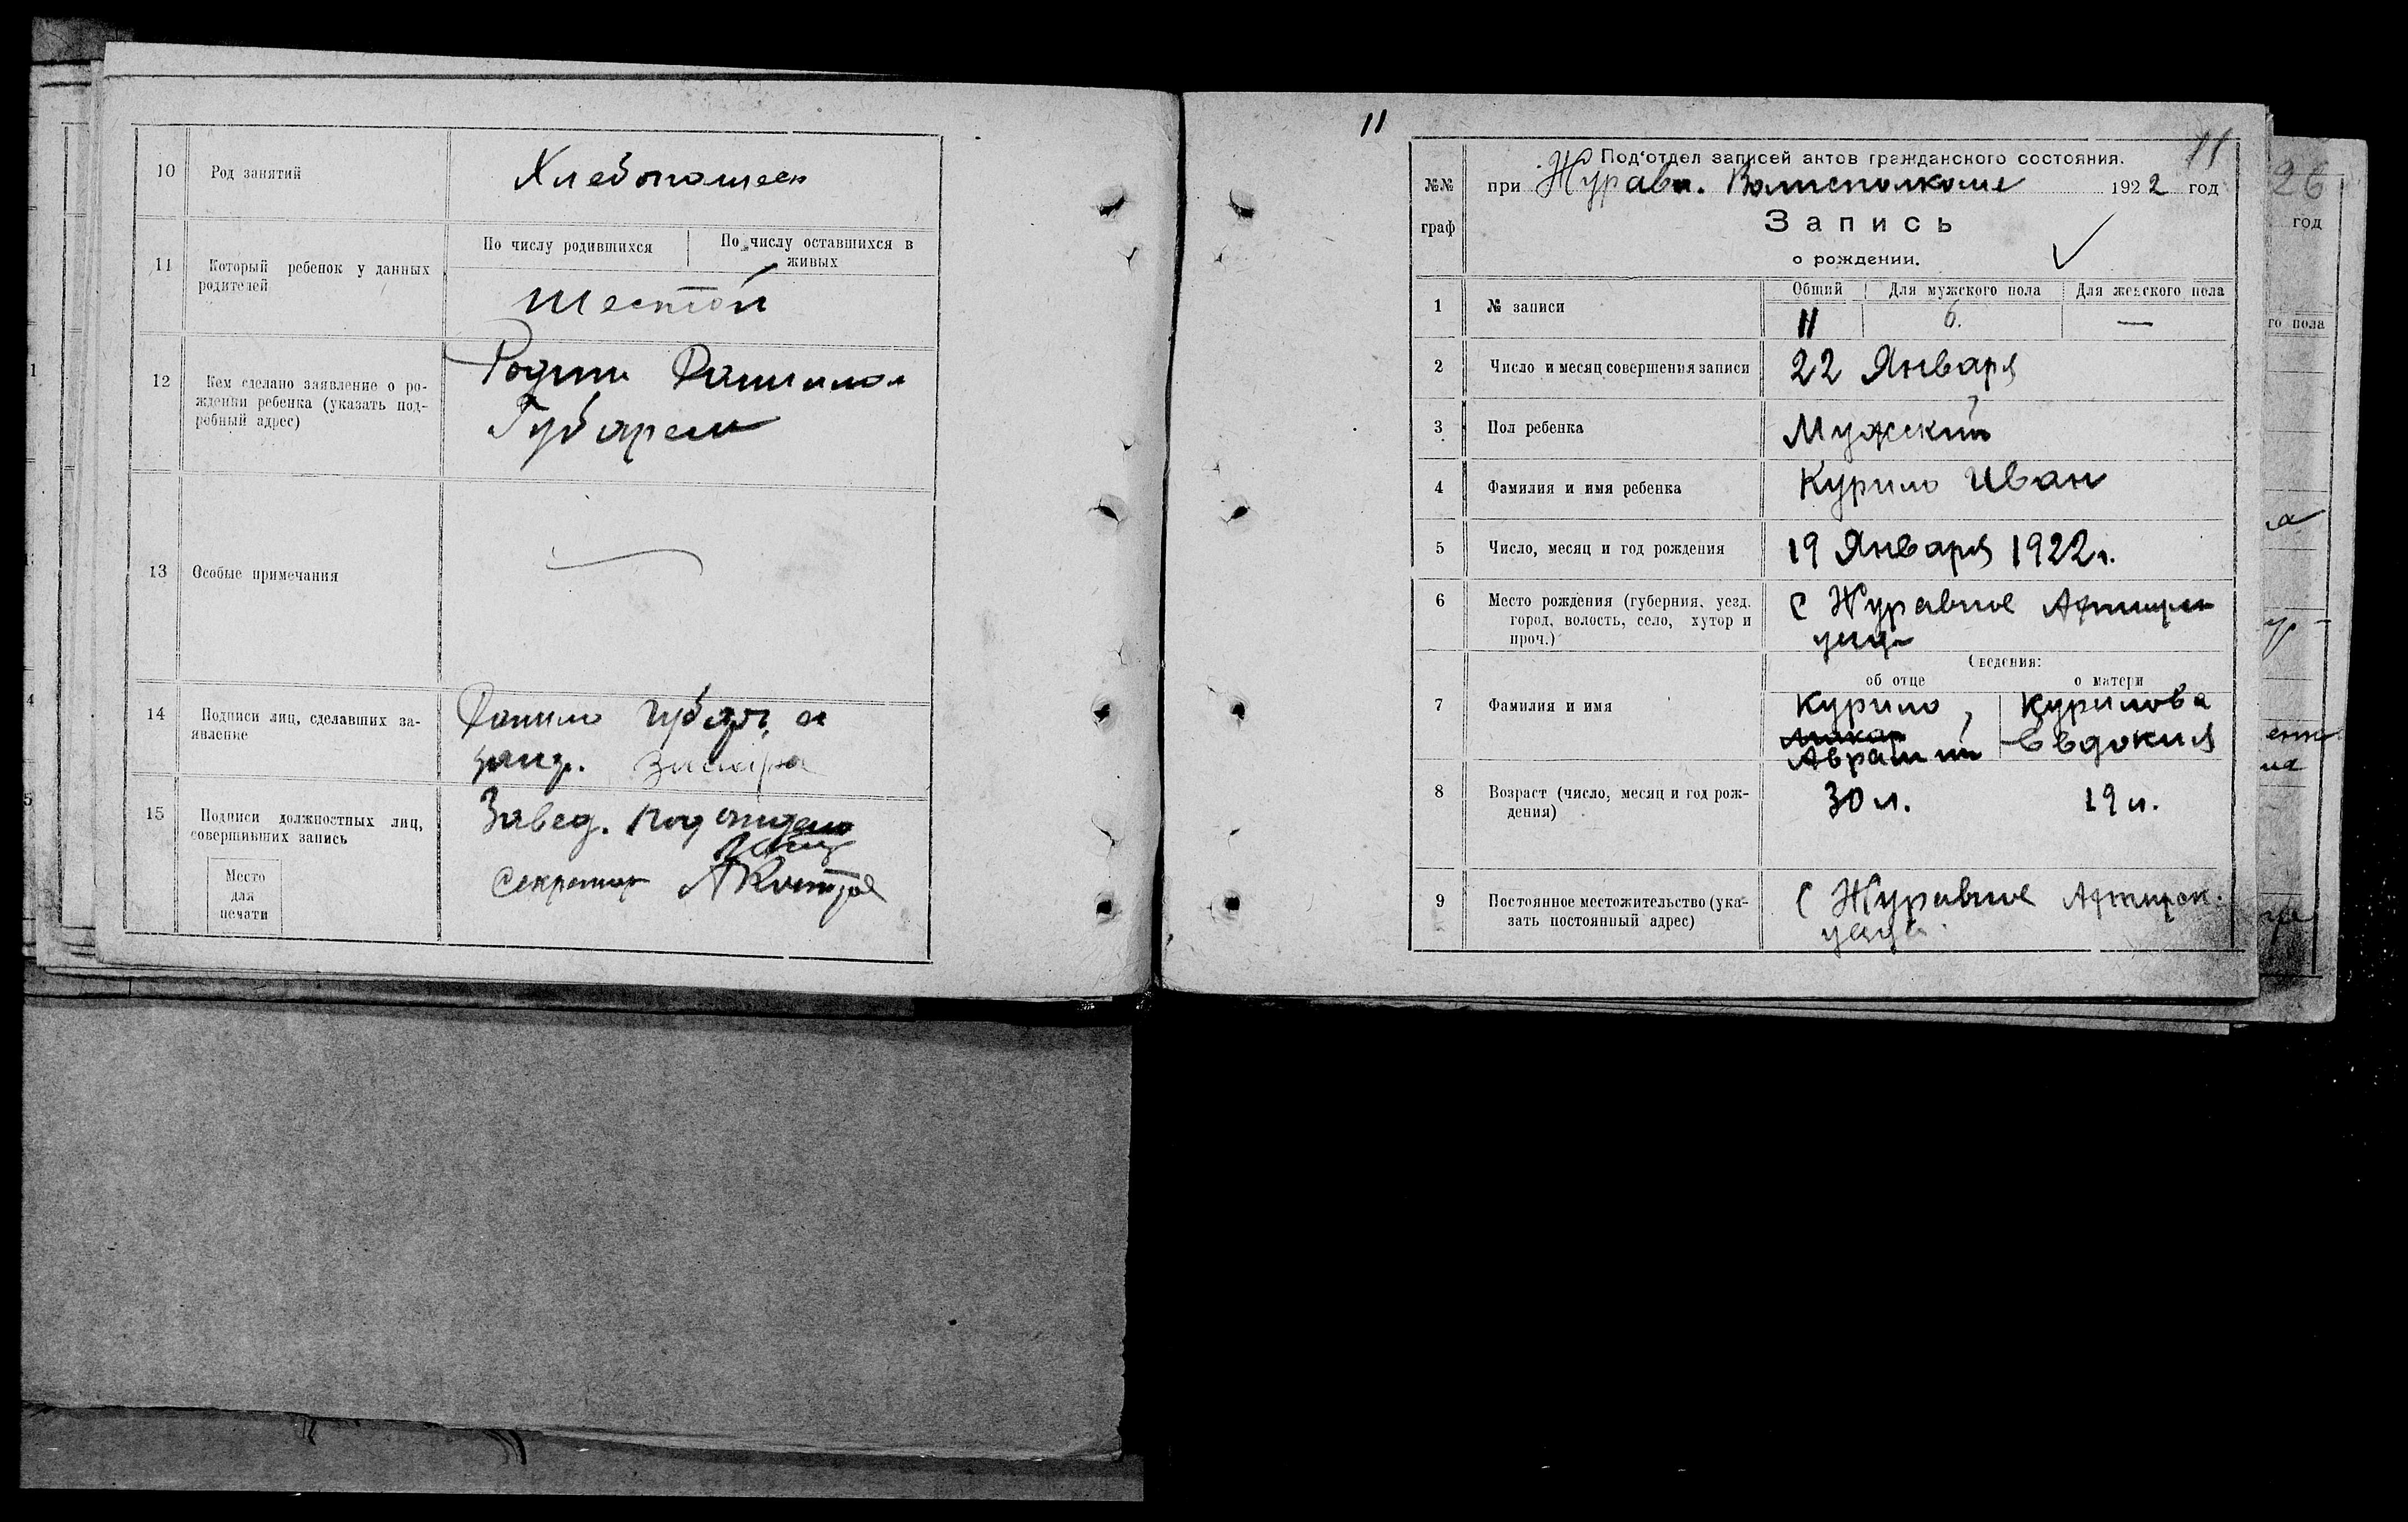 10 Род занятий Хлебопашец
11 Который ребенок у данных родителей
По числу родившихся По числу оставшихся в живых
шестой
12 Кем сделано заявление о ро-
ждении ребенка (указать под-
робный адрес)
Данилом
Губарем
13 Особые примечания
14 Подписи лиц, сделавших за-
явление
Данило Губарь, а
15 Подписи должностных лиц,
совершивших запись
Завед. Подотдело
Секретар
Место
для
печати
11
11
Под'отдел записей актов гражданского состояния.
№№ граф
при Журавл. Волисполкоме 1922 год
Запись
о рождении.
Общий Для мужского пола Для женского пола
1 № записи 11 6. —
2 Число и месяц совершения записи 22 Января
3 Пол ребенка Мужский
4 Фамилия и имя ребенка Курило Иван
5 Число, месяц и год рождения 19 Января 1922 г.
6 Место рождения (губерния, уезд,
город, волость, село, хутор и
проч.)
С Журавное
Сведения:
об отце о матери
7 Фамилия и имя
Курило, Курилова
Аврамий Евдокия
8 Возраст (число, месяц и год рож-
дения)
30 л. 19 л.
9 Постоянное местожительство (ука-
зать постоянный адрес)
С Журавное Ахтырск.
уезда
26
год
го пола